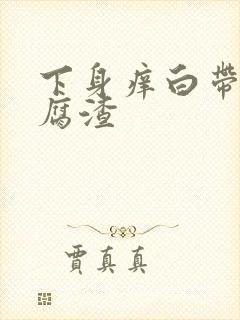 下身痒白带
腐渣
贾真真